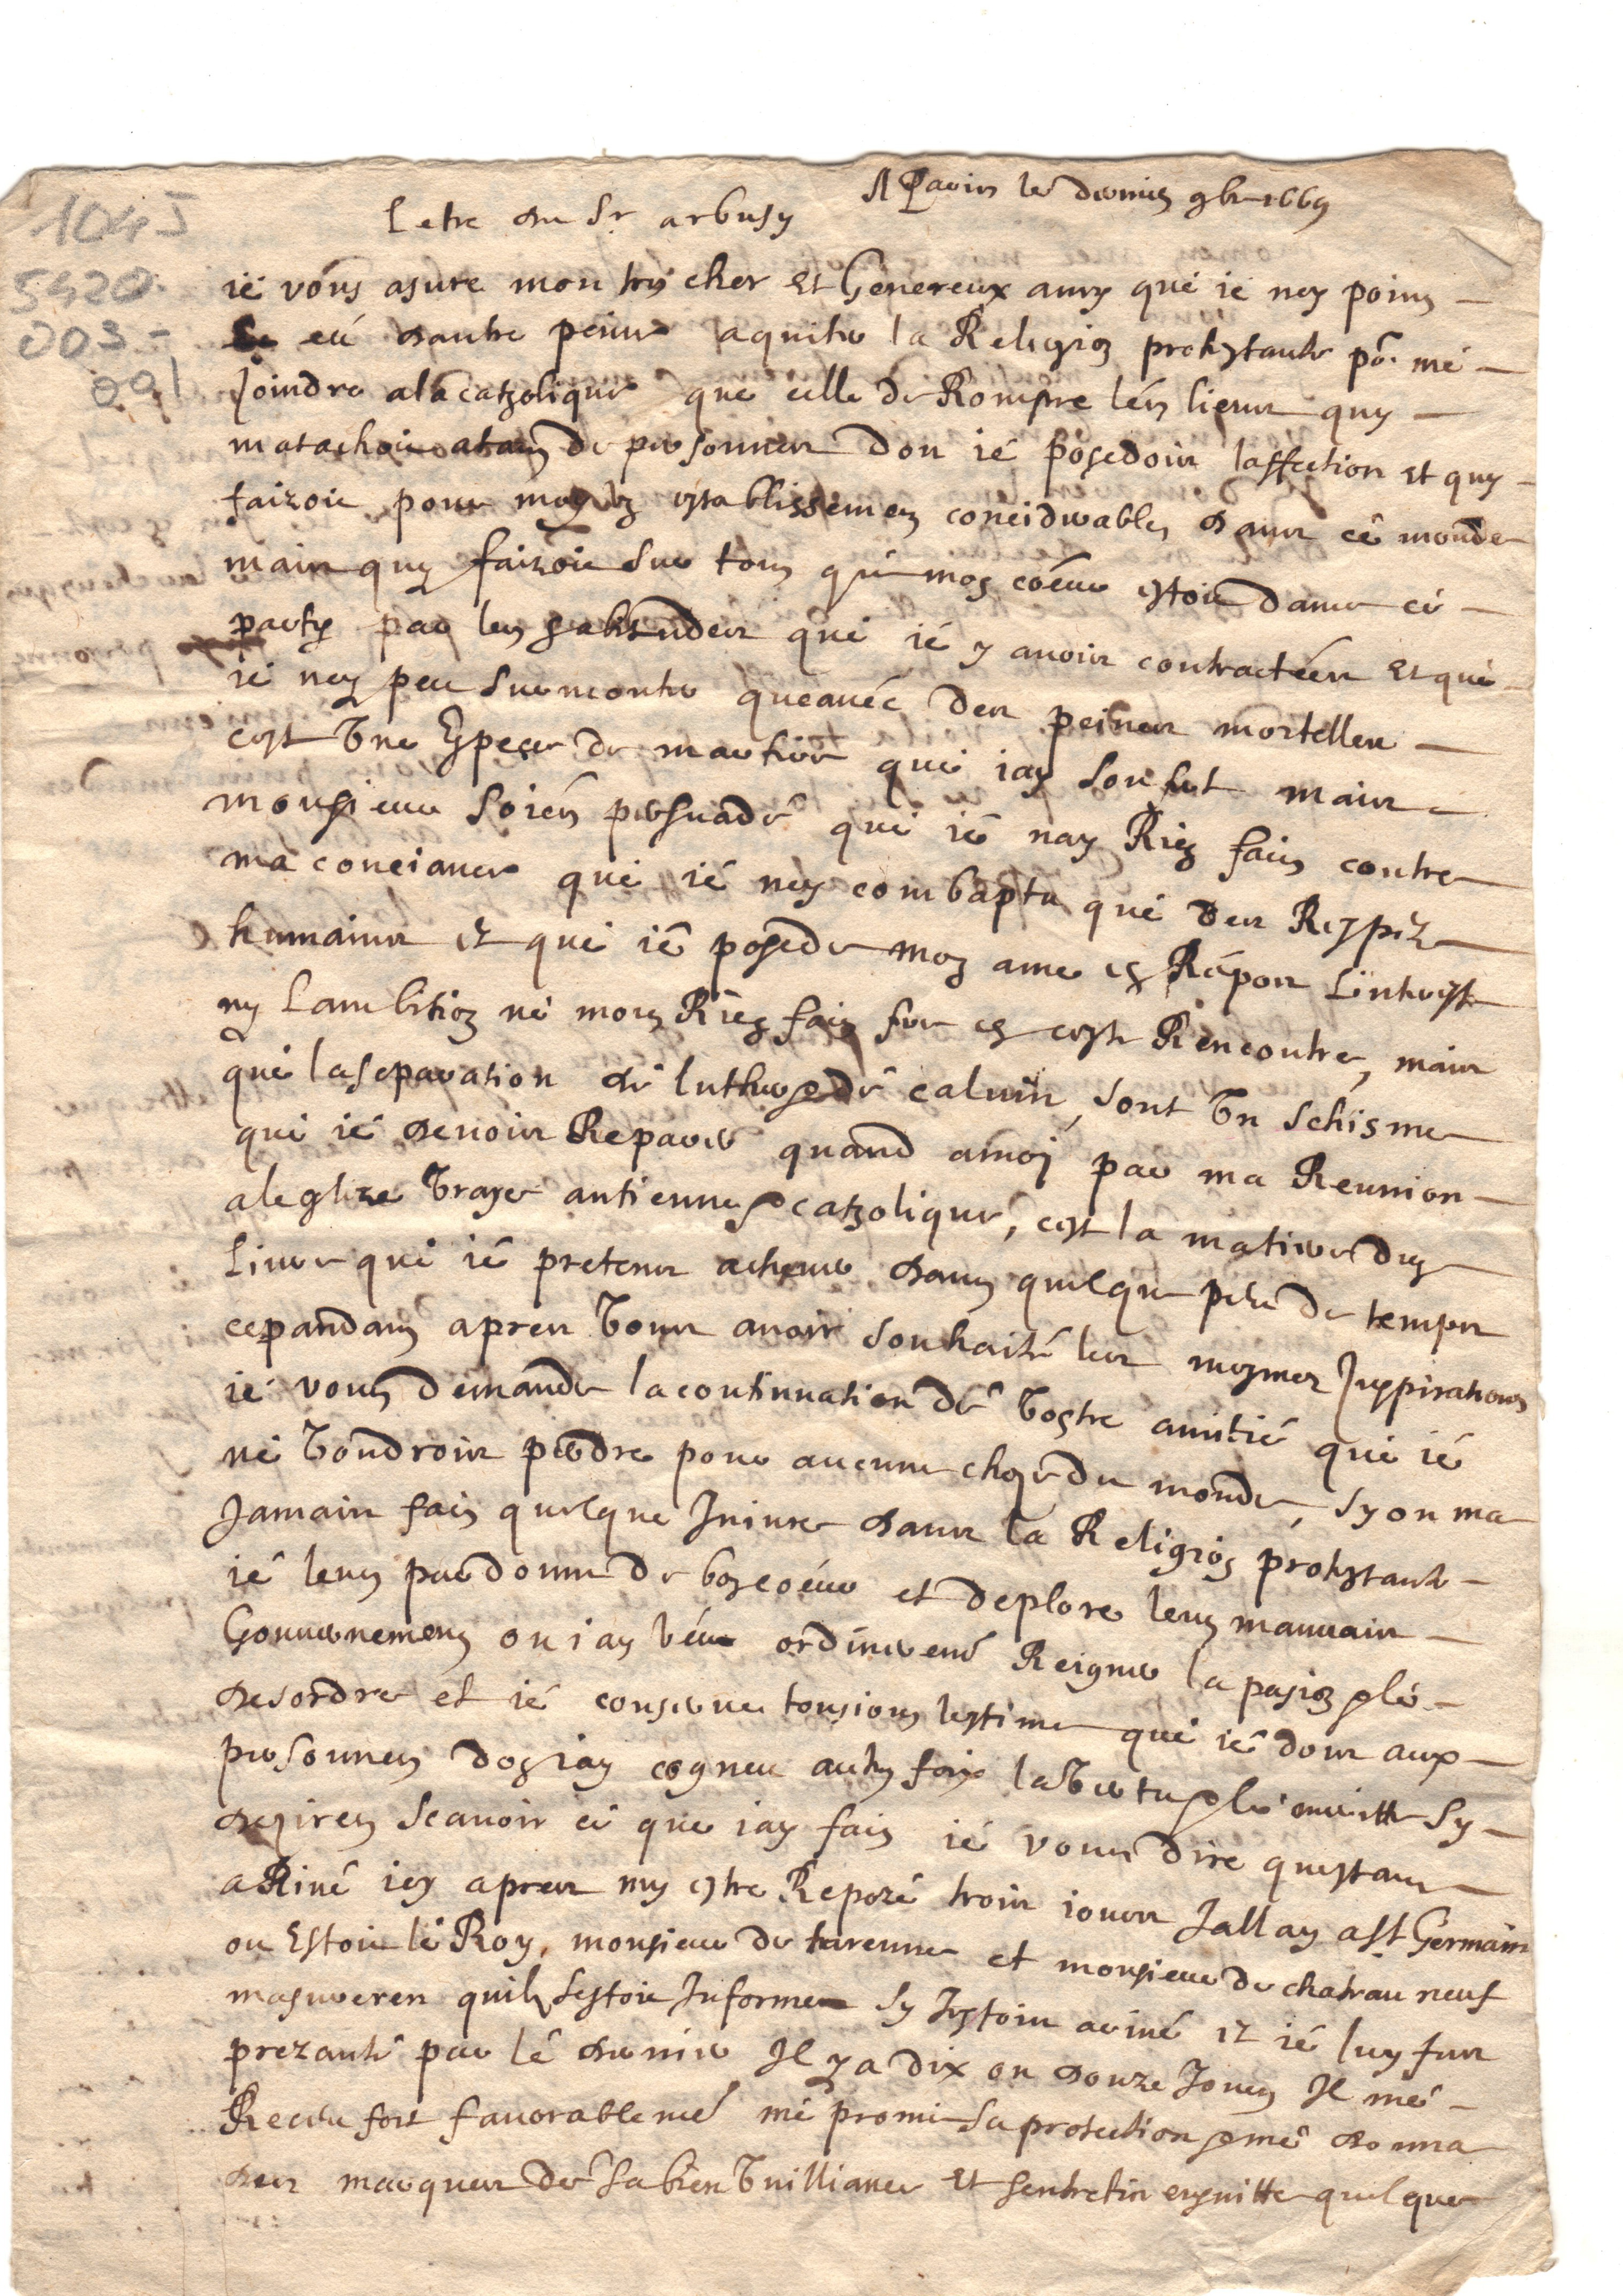 A Paris le dernier 9br 1669
Letre du Sr arbusy
1045
5420
003-
091
ié vous asure mon tres cher et Genereux amy que ie ney poins
eü dautre peine a quiter la Religion protestante pr. mé
Joindre ala catholique que celle de Rompre les liens quy
matachoit atans de personnes don ié posedois laffection et quy
faizoit pour moy un establissemen conciderables dans cé monde
mais quy faizoit sur tous que mon coeur estoit dans ce
party par les habitudes que ié y auois contractées et que
ie ney peu surmonter queauéc des peines mortelles
cest Une Espece de martire que iay soufert mais
monsieur soiés persuadé que ié nay Rien fais contre
ma conciance que ié ney combaptu que des Respez
humains et que ié posede mon ame en Répos Linterest
ny Lambition ne mons Rien fais fere en ceste Rencontre, mais
que la separation de luther & de caluin sont Un schisme
que ié deuois Reparer quand amoy par ma Reunion
aleglize Vraye antienne & catholique, cest la matiere dun
Liure que ié pretens acheuer dans quelque peu de temps
cepandans apres Vous auoir souhaité les mesmes Inspirations
ié vous demande la continuation dé Vostre amitié que ié
né Voudrois perdre pour aucune chose du monde, sy on ma
Jamais fais quelque Iniure dans la Religion protestante
ié leur pardonne de bon coeur et deplore leur mauuais
Gouuernemens ou iay véu ordinerement Reigner la pasion & le
desordre et ié conserue tousiours lestime que ié dois aux
personnes don iay cogneu autres fois la Vertu & le meritte sy
desires scauoir cé que iay fais ié vous dire questans
aRiué icy apres my estre Repozé trois iours Jallay a St Germain
ou Estoit lé Roy, monsieur de turenne et monsieur de chateau neuf
masureren quil sestoit Informé sy Jestois ariué et ié luy fus
prezanté par lé dernier Il y a dix ou douze Jours Il mé
Receu fort fauorablemé mé promi sa protection & mé donna
des marques dé sa bien Veilliance et sentretin ensuitte quelque